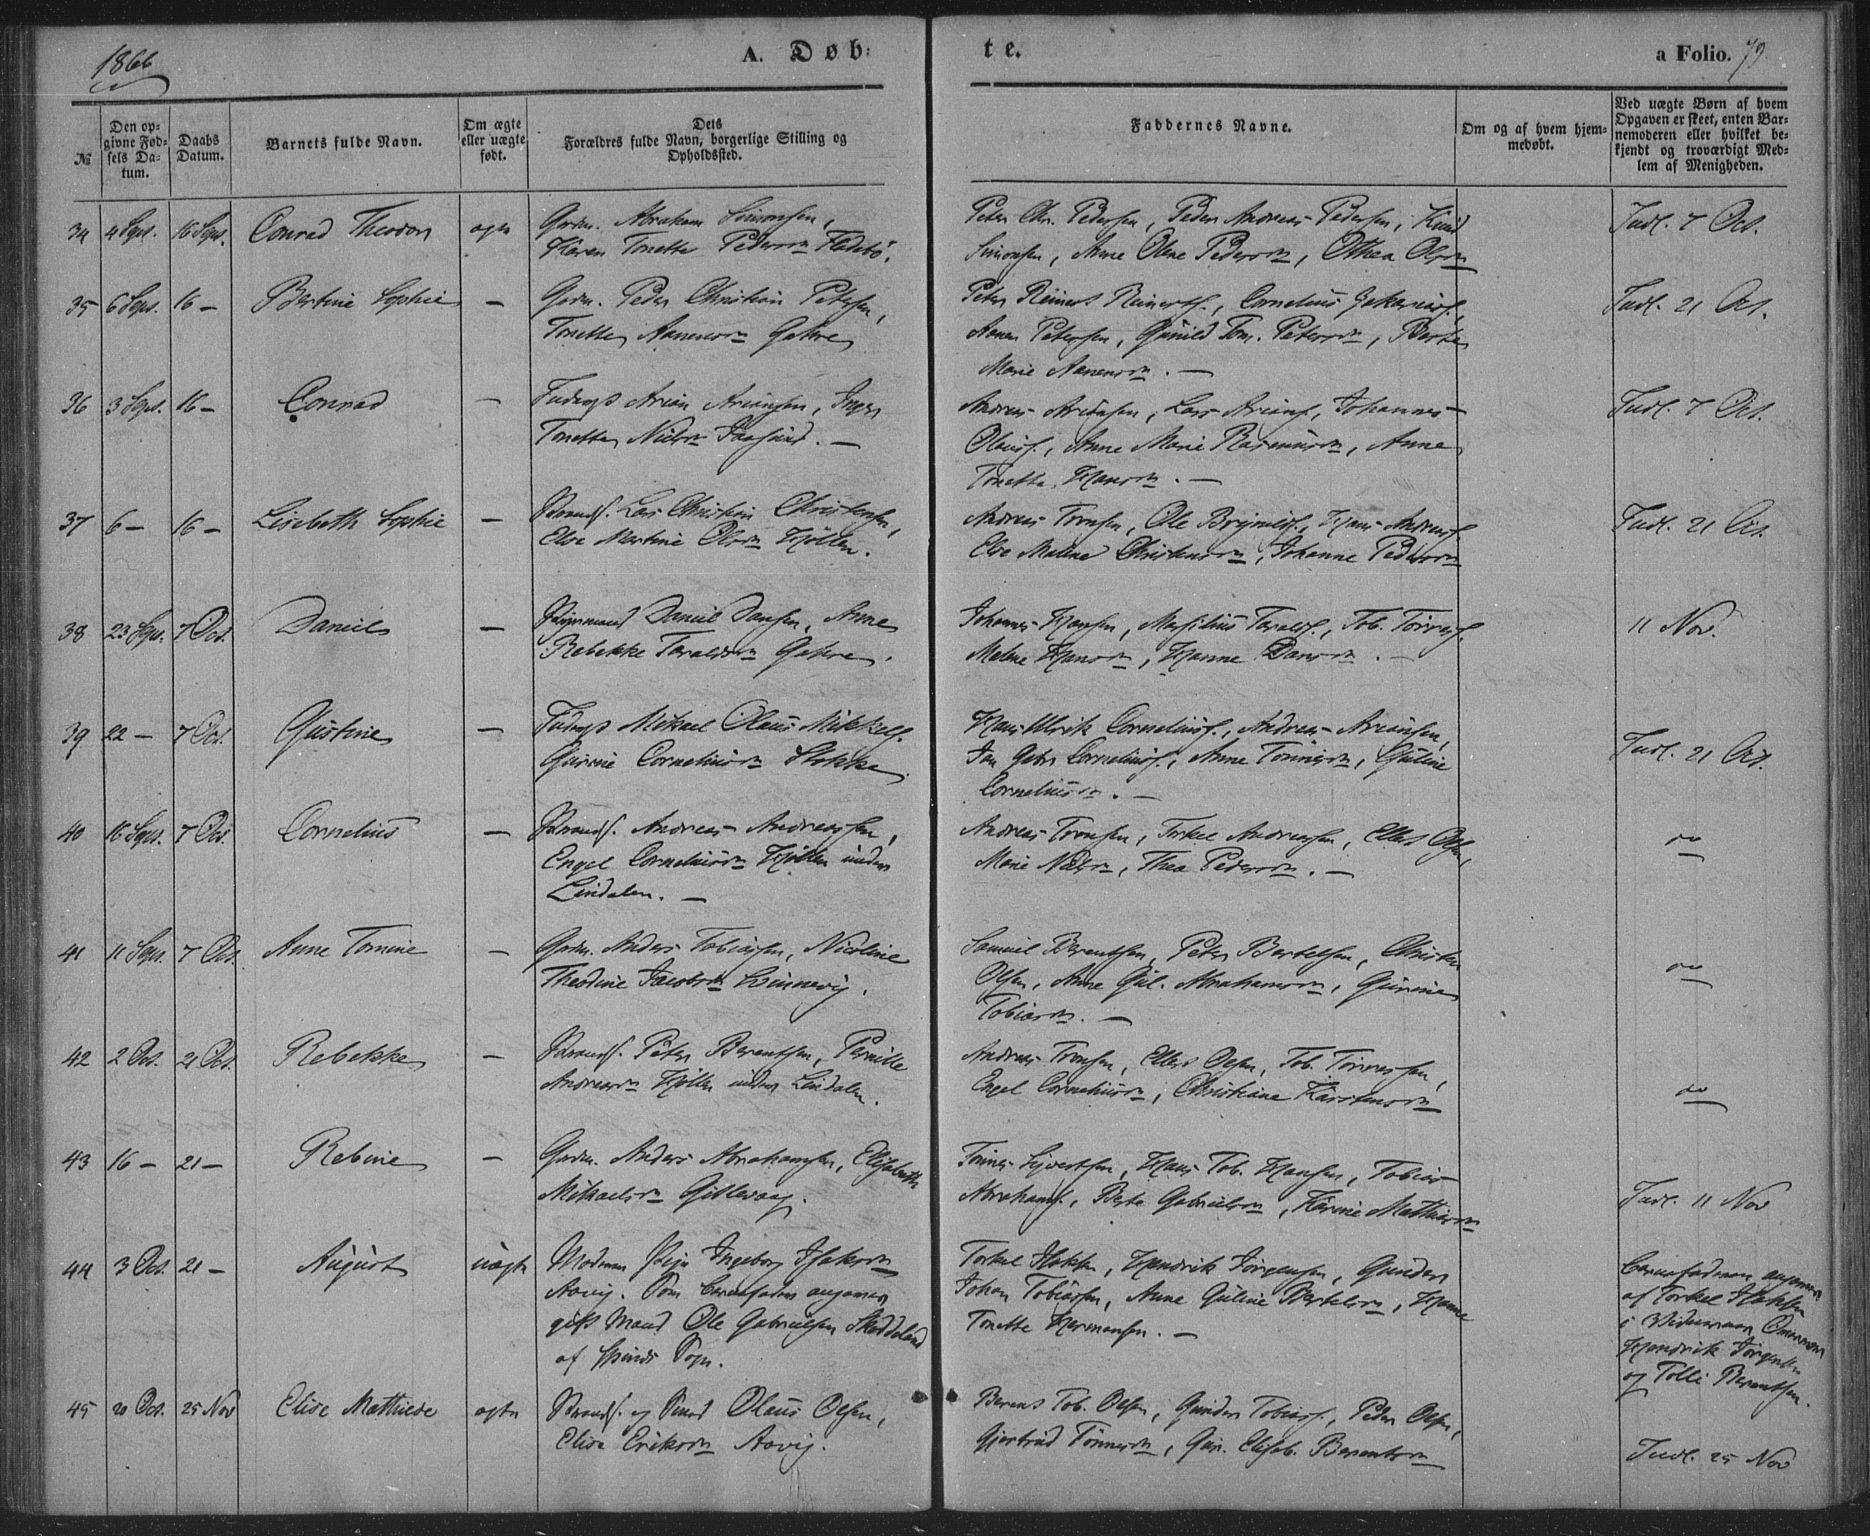 1866
A. Døb:
te.
a Folio. 79.
№
Den op-
givne Fød-
sels Da-
tum.
Daabs
Datum.
Barnets fulde Navn.
Om ægte
eller uægte
født.
Dets
Forældres fulde Navn, borgerlige Stilling og
Opholdssted.
Faddernes Navne.
Om og af hvem hjem-
medøbt.
Ved uægte Børn af hvem
Opgaven er skeet, enten Bar-
nemoderen eller hvilket be-
kjendt og troværdigt Med-
lem af Menigheden.
34 4 Sept. 16 Sept. Conrad Theodor ægte Grdm. Abraham Simonsen,
Karen Tonette Pedersdn
Peter Chr. Pedersen, Peder Andreas Pedersen, Knud
Simonsen, Anne Olene Pedersdn, Othea Olsdn
Indl. 7 Oct.
35 6 Sept. 16 — Bertine Sophie — Grdm. Peder Christian Petersen,
Tonette Aanensdn Gahre
Peter Reinert Reinerts., Cornelius Zakarias.,
Aanen Petersen, Gunild Tom. Petersdn, Berte
Marie Aanensdn. —
Indl. 21 Oct.
36 3 Sept. 16 — Conrad — Inderst Arian Ariansen, Inger
Tonette Nielsdn —
Andreas Ariansen, Lars Arians., Johannes
Olaus., Anne Marie Rasmusdn, Anne
Tonette Hansdn. —
Indl. 7 Oct.
37 6 — 16 — Lisebeth Sophie — Strands. Lars Christian Christensen,
Elve Martine Olsdn Hjøllen.
Andreas Tronsen, Ole Brynilds., Hans Andreas.
Elve Malene Christensdn, Johanne Pedersdn
Indl. 21 Oct.
38 23 Sept. 7 Oct. Daniel — Daniel Dansen, Anne
Rebekke Taraldsdn Gahre.
Johannes Hansen, Marsilius Taralds., Tob. Tønnes.
Malene Hansdn, Hanne Dansdn. —
11 Nov.
39 22 — 7 Oct. Gustine — Inderst Mikael Olaus Mikkels.
Gurine Corneliusdn Stokke.
Hans Ulrik Cornelius., Andreas Ariansen,
Jan Gabr. Cornelius., Anne Tønnesdn, Guline
Corneliusdn. —
Indl. 21 Oct.
40 16 Sept. 7 Oct. Cornelius — Strands. Andreas Andreassen,
Engel Corneliusdn Hjøllen under
Lindalen. —
Andreas Tronsen, Tirkel Andreassen, Ellert Olsen,
Marie Nielsdn, Thea Pedersdn. —
41 11 Sept. 7 Oct. Anne Tomine — Grdm. Anders Tobiassen, Nicoline
Theodine Jacobsdn
Samuel Berentsen, Peter Bertelsen, Christen
Olsen, Anne Gul. Abrahamsdn, Gurine
Tobiasdn. —
42 2 Oct. 21 Oct. Rebekke — Strands. Peter Berentsen, Pernille
Andreasdn Hjøllen under Lindalen.
Andreas Tronsen, Ellert Olsen, Tob. Tønnessen,
Engel Corneliusdn, Christiane Karstensdn
43 16 — 21 — Rebine — Grdm. Anders Abrahamsen, Elisabeth
Mikaelsdn Gitlevaag.
Tønnes Syvertsen, Hans Tob. Hansen, Tobias
Abrahams., Berte Gabrielsdn, Karine Mathiasdn
Indl. 11 Nov
44 3 Oct. 21 — August uægte Moderen Pige Ingeborg Isaksdn
Aavig. Som Barnefader angiven
gift Mand Ole Gabrielsen Skeddeland
af Spinds Sogn.
Torkel Isaksen, Hendrik Jørgensen, Gunder
Johan Tobiassen, Anne Guline Bertelsdn, Hanne
Tonette Hermansen. —
Barnefaderen angiven
af Torkel Isaksen
Hendrik Jørgensen
og Tolli Berentsen.
45 20 Oct. 25 Nov Elise Mathilde ægte Strands. og Smed Olaus Olsen,
Elise Eriksdn Aavig.
Berent Tob. Olsen, Gunder Tobias., Peder Olsen,
Gjertrud Tønnesdn, Gur. Elisab. Berentsdn
Indl. 25 Nov